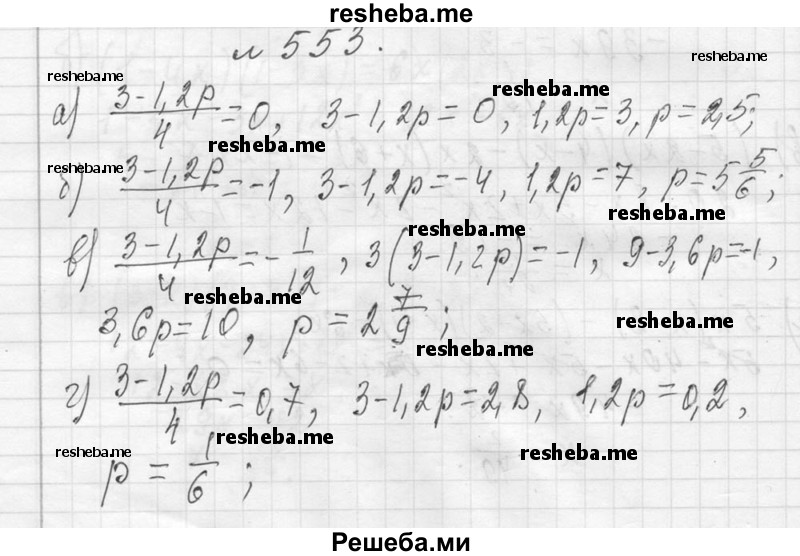 resheba.me
№ 553.
resheba.me resheba.me resheba.me
а) (3-1,2p)/4 = 0, 3-1,2p = 0, 1,2p = 3, p = 2,5;
resheba.me resheba.me
б) (3-1,2p)/4 = -1, 3-1,2p = -4, 1,2p = 7, p = 5 5/6;
resheba.me resheba.me
в) (3-1,2p)/4 = -1/12, 3(3-1,2p) = -1, 9-3,6p = -1,
resheba.me resheba.me
3,6p = 10, p = 2 7/9;
resheba.me resheba.me
г) (3-1,2p)/4 = 0,7, 3-1,2p = 2,8, 1,2p = 0,2,
resheba.me resheba.me resheba.me
p = 1/6;
Решеба.ми